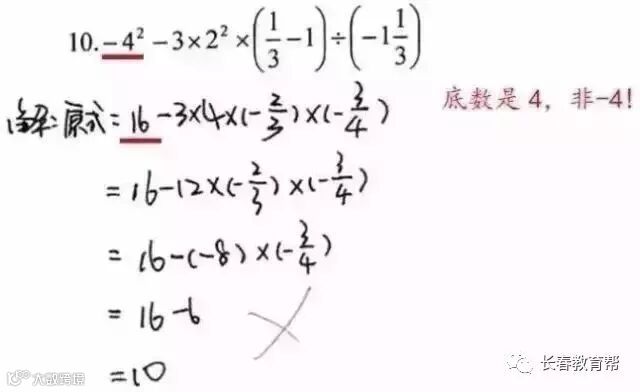 10.−4² −3×2²×(1/3−1)÷(−1 1/3)
解:原式=16−3×4×(−2/3)×(−3/4)
底数是 4，非−4!
=16−12×(−2/3)×(−3/4)
=16−(−8)×(−3/4)
=16−6
=10
长春教育帮
大数跨境